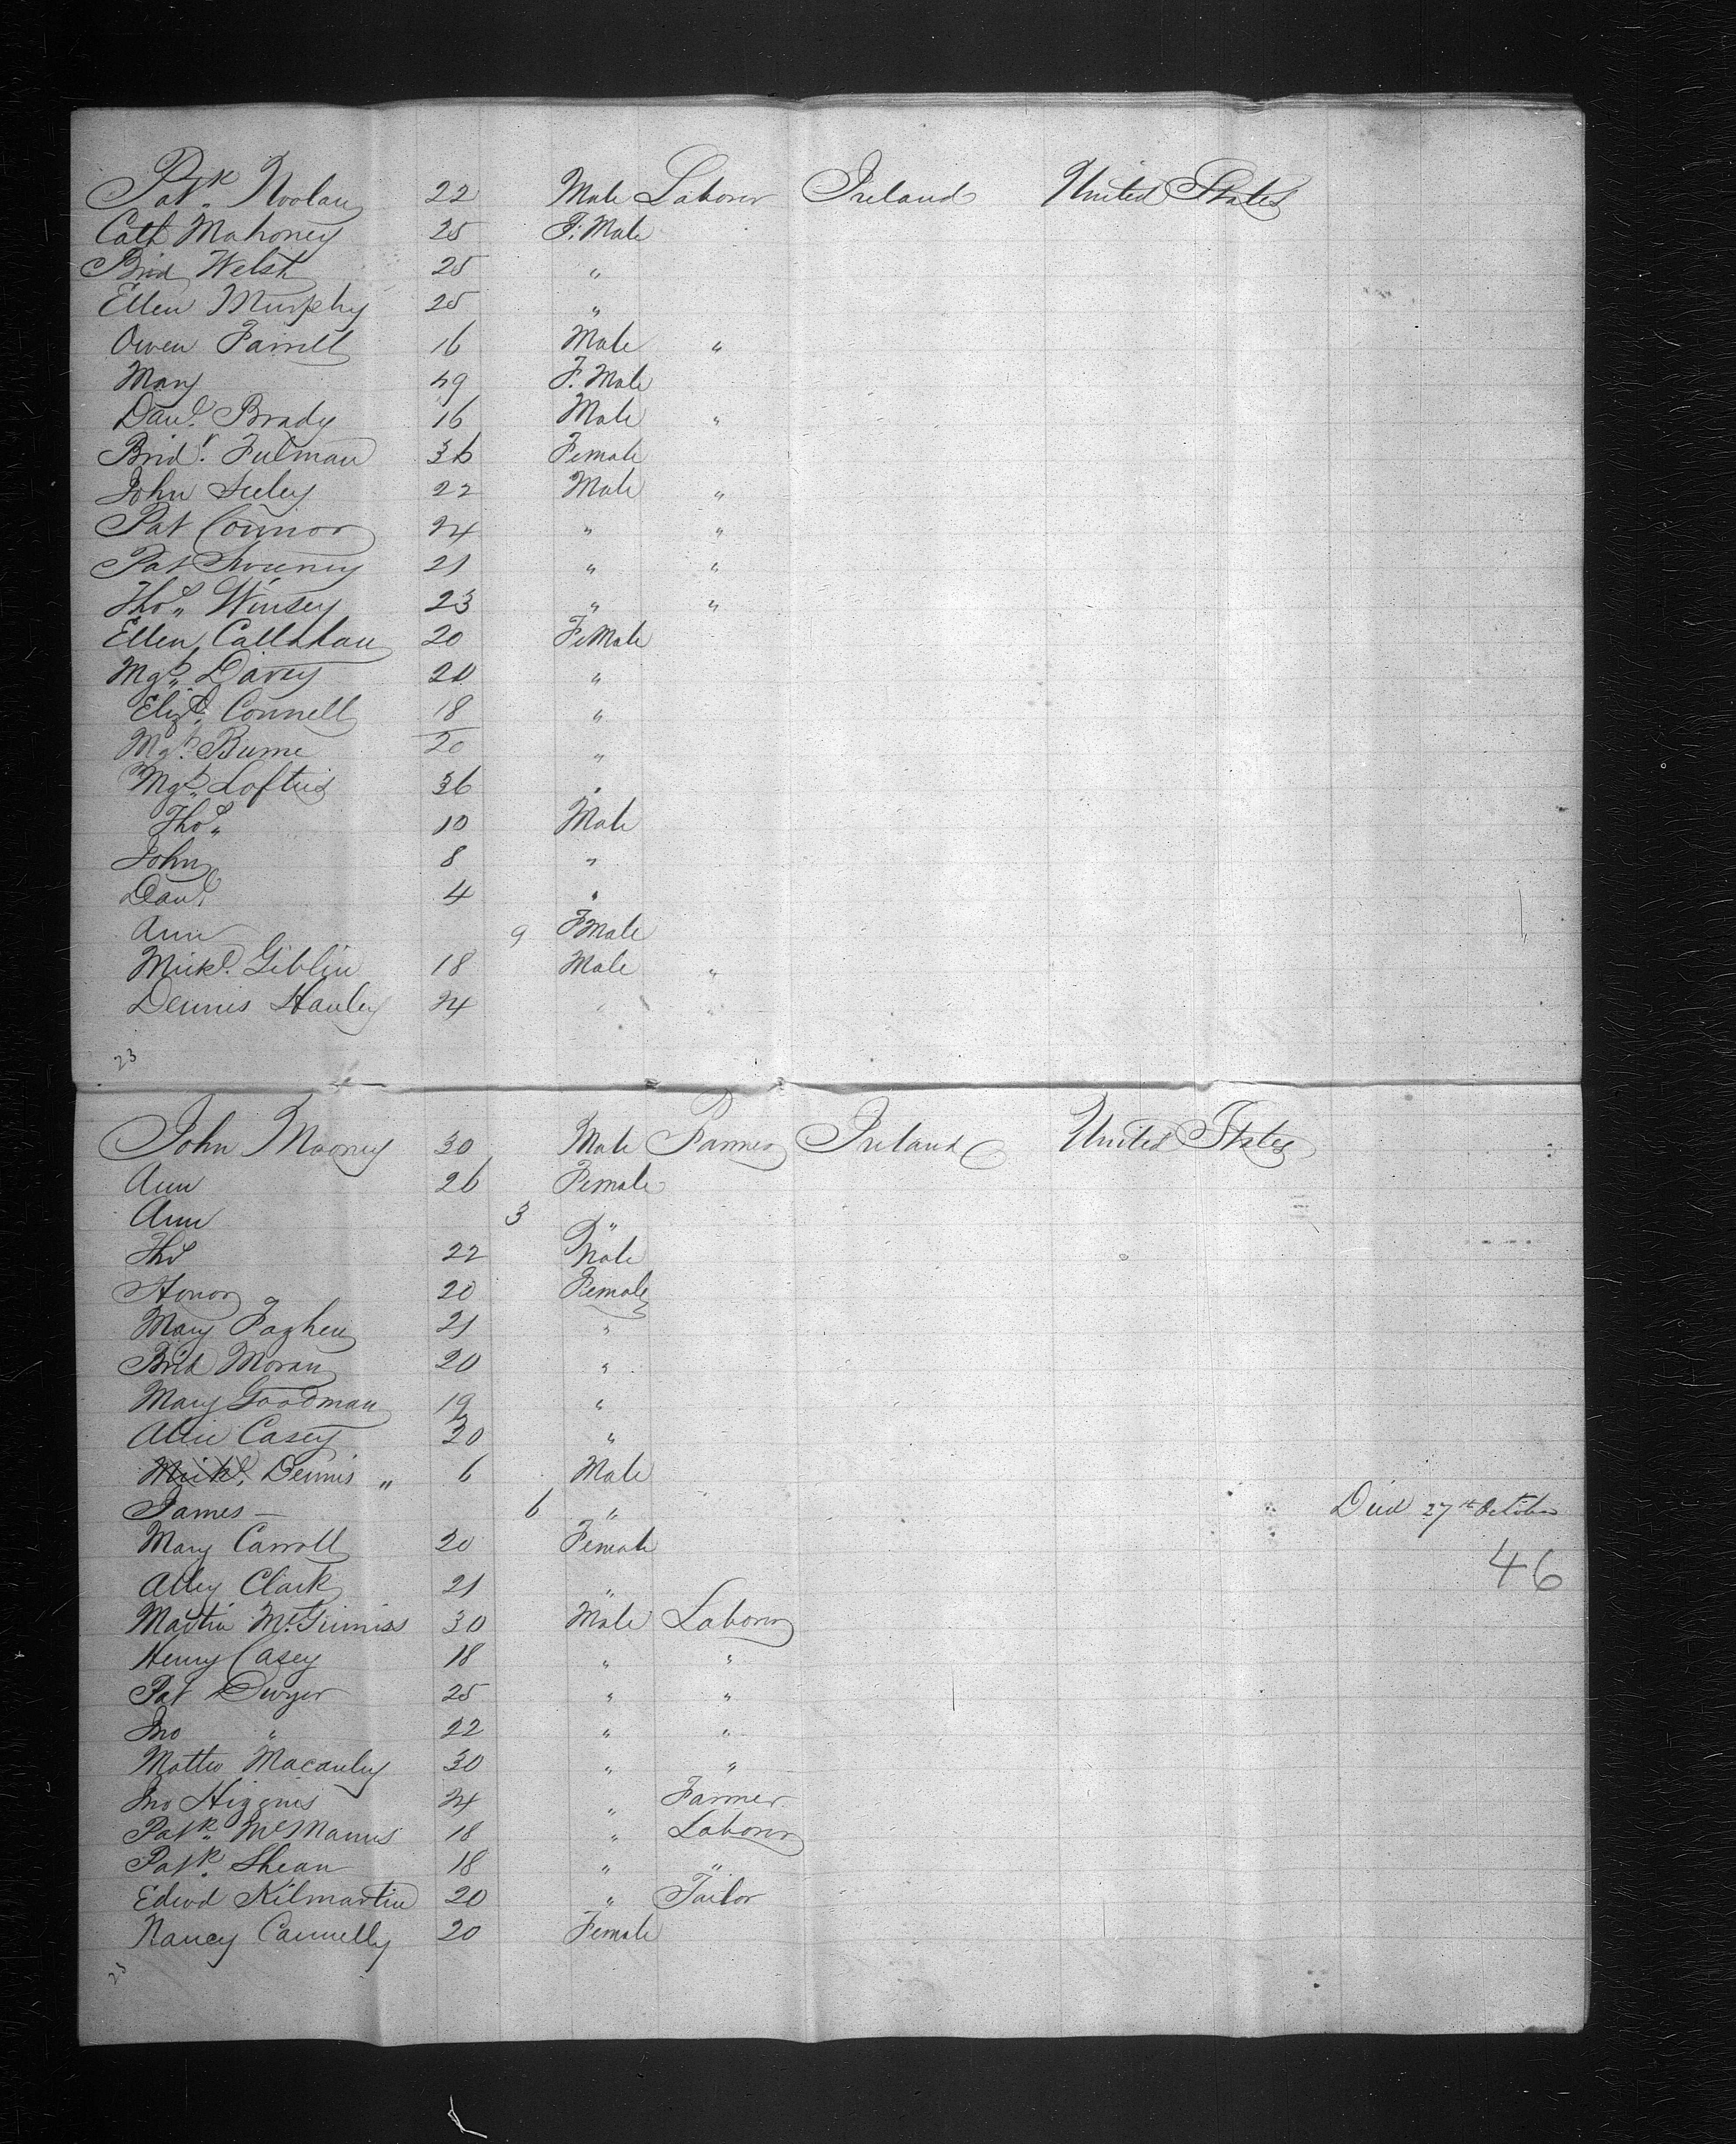 Patk. Noolan 22 Male Laborer Ireland United States
Cath Mahoney 25 F. Male
Brid Welsh 25 "
Ellen Murphy 25 "
Owen Farrell 16 Male "
Mary 49 F. Male
Danl. Brady 16 Male "
Bridt. Fulman 36 Female
John Seeley 22 Male "
Pat Connor 24 " "
Pat Sweeney 21 " "
Thos. Winsey 23 " "
Ellen Callahan 20 FeMale
Mgt. Davey 20 "
Elizth. Connell 18 "
Mgt. Burne 20 "
Mgt. Loftus 36 "
Thos. 10 Male
John 8 "
Danl. 4 "
Ann 9 FMale
Mickl. Giblin 18 Male "
Dennis Hanley 24 " "
23
John Mooney 30 Male Farmer Ireland United States
Ann 26 Female
Ann 3 "
Thos 22 Male
Honor 20 Female
Mary Faghey 21 "
Brid Moran 20 "
Mary Goodman 19 "
Alice Casey 30 "
Mickl. Dennis " 6 Male
James — 6 " Died 27th October
Mary Carroll 20 Female
46
Alley Clark 21 "
Martin McGinniss 30 Male Laborer
Henry Casey 18 " "
Pat Dwyer 25 " "
Jno " 22 " "
Mattw Macauley 30 " "
Jno Higgins 24 " Farmer
Patk. McManus 18 " Laborer
Patk. Shean 18 " "
Edwd Kilmartin 20 " Tailor
Nancy Connelly 20 Female
23